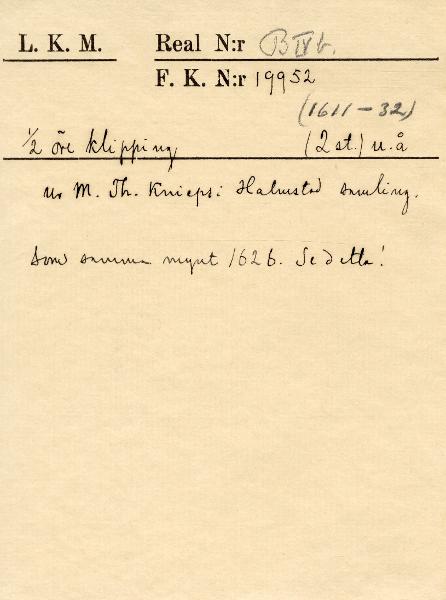 L. K. M. Real N:r B IV b.
F. K. N:r 19952
(1611-32)
1/2 öre klipping (2 st.) u.å
ur M. Th. Knieps i Halmstad samling.
som samma mynt 1626. Se detta!